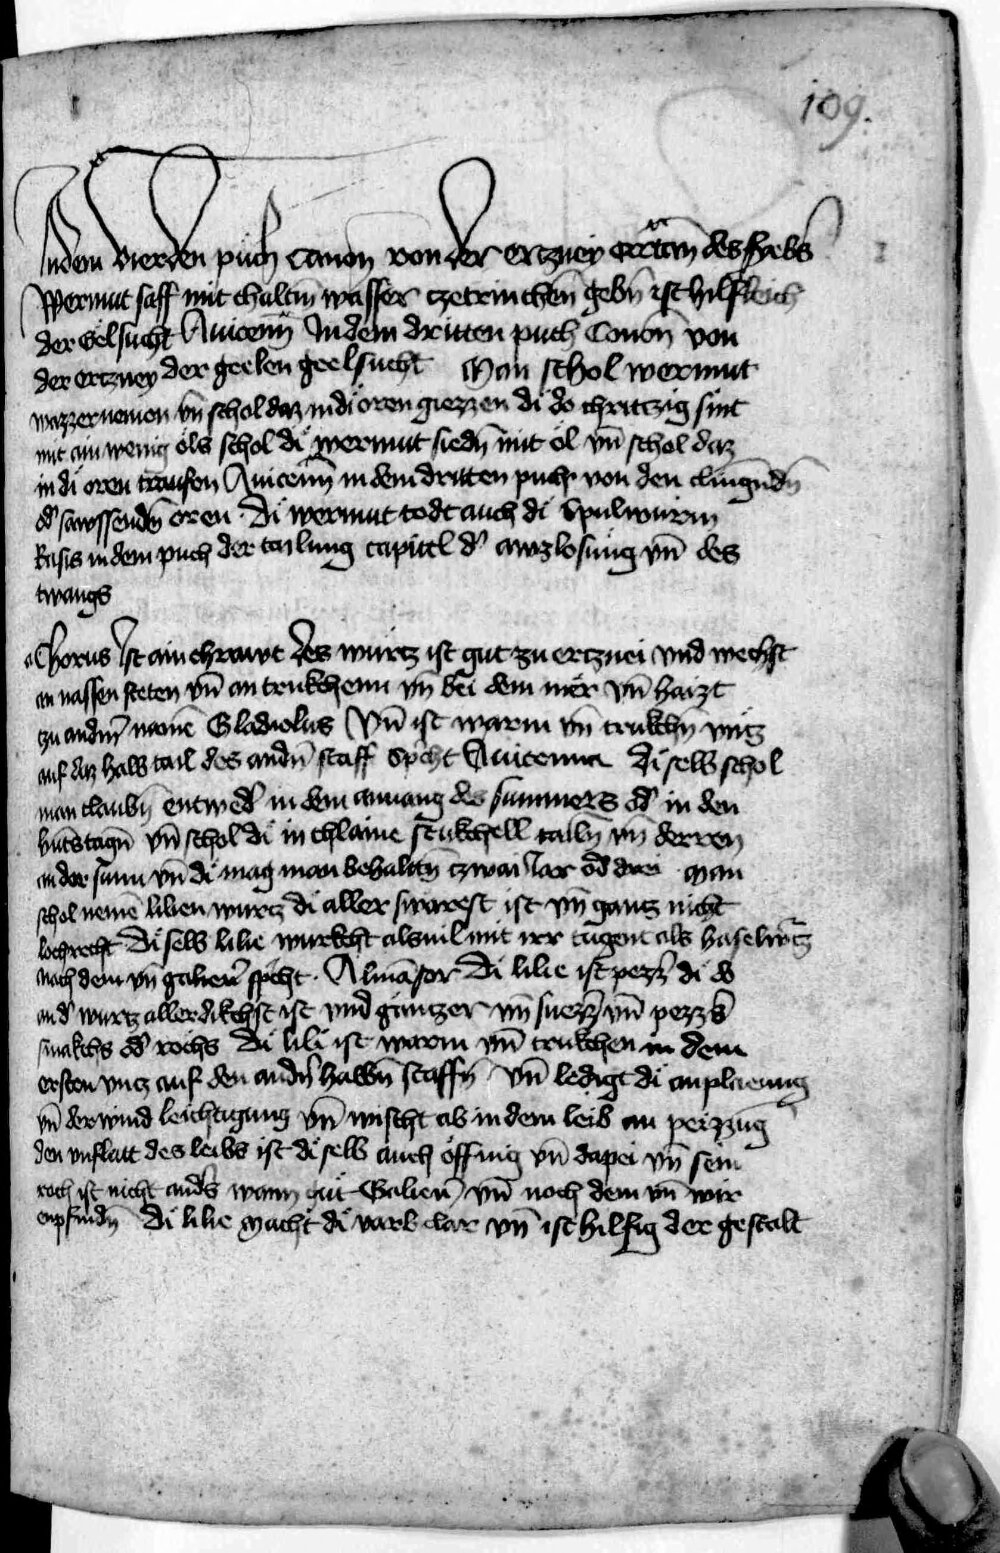 109.
Indem vierden puch Canon von der ertzney ertzten des Fiebers
Wermut saff mit chaltm̄ wasser czetrinchen̄ gebn̄ ist hilfleich
der Gelsucht Auicenn̄ In dem dritten puch Conon̄ von
der ertzney der geelen geelsucht Man schol wermut
wazzer nemen vn̄ schol daz in di oren giezzen di do chretzig sint
mit ain wenig öls schol di wermut siedn̄ mit öl vn̄ schol daz
in di oren traufen Auicenn̄ in dem dritten puch von den clingūdn̄
od' sawssendn̄ oren · Di wermut todt auch di Spulwurm
Rasis in dem puch der tailung capittel d' awzlosung vn̄ des
twangs
Achorus Ist ain chrawt des wurtz ist gut zu ertznei vnd wechst
an nassen steten vn̄ an trukchenn vn̄ bei dem mer vn̄ haizt
zu andm̄ namē Gladiolus Vn̄ ist warm vn̄ trukchn̄ vntz
auf daz halb tail des andn̄ staff Sp'cht Auicenna Di selb schol
man claubn̄ entwed' in dem anuang des summers od' in den
hūtstagn̄ vn̄ schol di in chlaine stukchell tailn̄ vn̄ derren
an der sunn vn̄ di mag man behaltn̄ czwai Iar od' drei Man
schol nemē lilien wurtz di aller swarest ist vn̄ gantz nicht
lochrecht Di selb lilie wurkcht alsuil mit irr tugent als haselw'tz
nach dem vn̄ galien' sp'cht · Almāsor Di lilie ist pezz' di do
and' wurtz aller dikchst ist vnd gantzer vn̄ suezz' vn̄ pezz's
smakchs od' rochs Di lili ist warm vn̄ trukchen in dem
ersten vntz auf den andn̄ halbn̄ staffn̄ Vn̄ ledigt di anplaeung
vn̄ der wind leichtigung vn̄ wischt ab in dem leib an peizzūg
den vnflatt des leibs ist di selb auch öffnig vn̄ dapei vn̄ sein
roch ist nicht and's wann gut Galien' vn̄ noch dem vn̄ wir
enpfindn̄ Di lilie Macht di varb clar vn̄ ist hilfig der gestalt